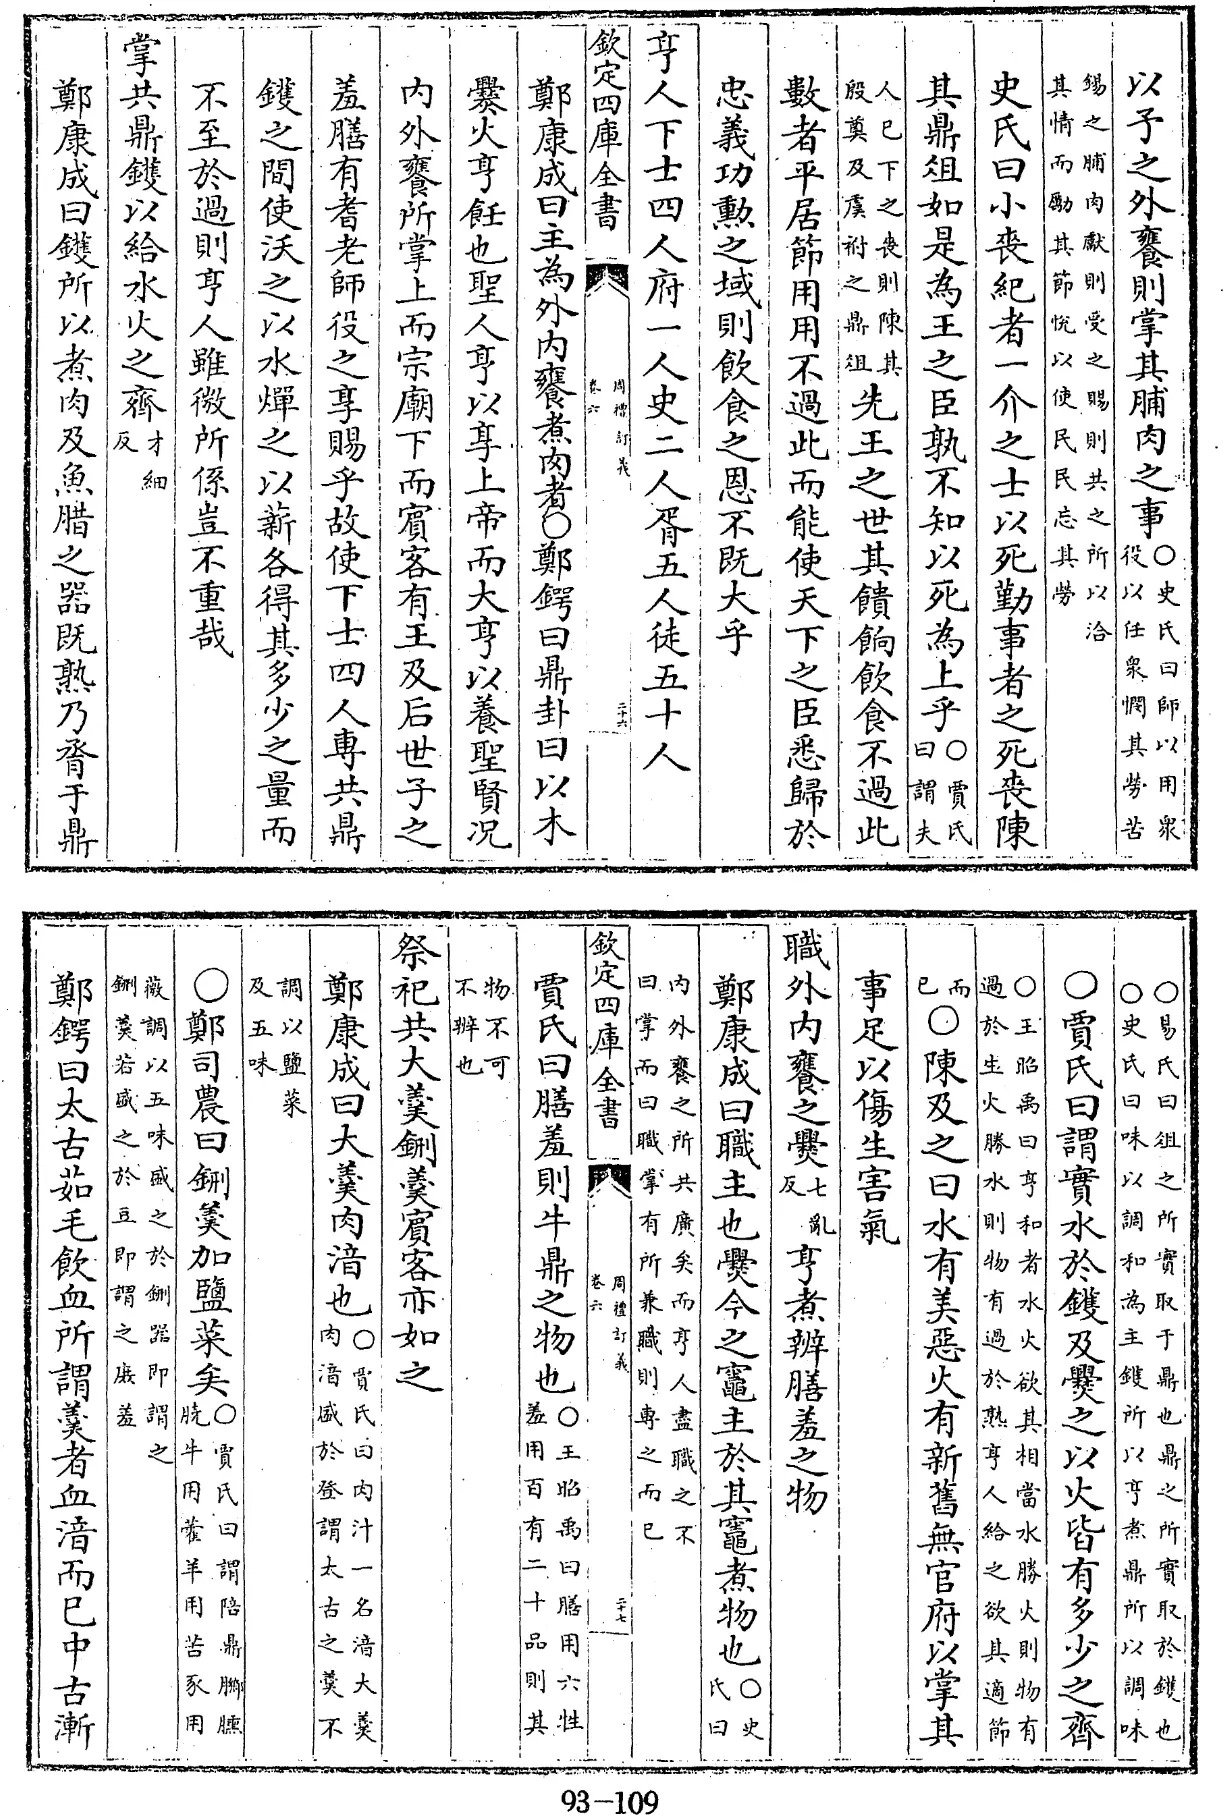 以予之外饔則掌其脯肉之事〇史氏曰師以用衆役以任衆憫其勞苦
錫之脯肉獻則受之賜則共之所以洽其情而勵其節悅以使民民忘其勞
史氏曰小喪紀者一介之士以死勤事者之死喪陳
其鼎俎如是為王之臣孰不知以死為上乎〇賈氏曰謂夫
人已下之喪則陳其殷奠及虞祔之鼎俎先王之世其饋餉飲食不過此
數者平居節用用不過此而能使天下之臣悉歸於
忠義功勲之域則飲食之恩不既大乎
亨人下士四人府一人史二人胥五人徒五十人
欽定四庫全書
周禮訂義
卷六
二十六
鄭康成曰主為外内饔煮肉者〇鄭鍔曰鼎卦曰以木
爨火亨飪也聖人亨以享上帝而大亨以養聖賢况
内外饔所掌上而宗廟下而賓客有王及后世子之
羞膳有耆老師役之享賜乎故使下士四人専共鼎
鑊之間使沃之以水燀之以薪各得其多少之量而
不至於過則亨人雖微所係豈不重哉
掌共鼎鑊以給水火之齊才細反
鄭康成曰鑊所以煮肉及魚腊之器既熟乃脀于鼎
〇易氏曰俎之所實取于鼎也鼎之所實取於鑊也〇史氏曰味以調和為主鑊所以亨煮鼎所以調味
〇賈氏曰謂實水於鑊及爨之以火皆有多少之齊
〇王昭禹曰亨和者水火欲其相當水勝火則物有過於生火勝水則物有過於熟亨人給之欲其適節
而已〇陳及之曰水有美惡火有新舊無官府以掌其
事足以傷生害氣
職外内饔之爨七亂反亨煮辨膳羞之物
鄭康成曰職主也爨今之竈主於其竈煮物也〇史氏曰
内外饔之所共廣矣而亨人盡職之不曰掌而曰職掌有所兼職則専之而已
欽定四庫全書
周禮訂義
卷六
二十七
賈氏曰膳羞則牛鼎之物也〇王昭禹曰膳用六牲羞用百有二十品則其
物不可不辨也
祭祀共大羹鉶羹賓客亦如之
鄭康成曰大羹肉湆也〇賈氏曰肉汁一名湆大羹肉湆盛於登謂太古之羹不
調以鹽菜及五味
〇鄭司農曰鉶羹加鹽菜矣〇賈氏曰謂陪鼎膷臐膮牛用藿羊用苦豕用
薇調以五味盛之於鉶器即謂之鉶羹若盛之於豆即謂之庶羞
鄭鍔曰太古茹毛飲血所謂羹者血湆而已中古漸
93-109